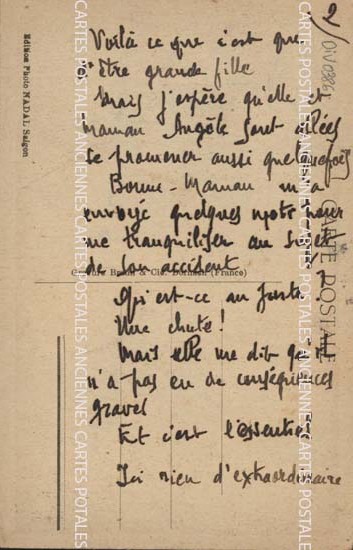 2/
DIV0386
Voilà ce que c'est que
d'être grande fille
Mais j'espère qu'elle et
maman Angèle sont allées
se promener aussi quelquefois
Bonne-Maman m'a
envoyé quelques mots pour
me tranquiliser au sujet
de son accident
Qu'est-ce au juste?
Une chute!
Mais elle me dit qu'il
n'a pas eu de conséquences
graves
Et c'est l'essentiel
Ici rien d'extraordinaire
Edition Photo NADAL Saigon
(France)
CARTE POSTALE
CARTES POSTALES ANCIENNES CARTES POSTALES ANCIENNES CARTES POTALES